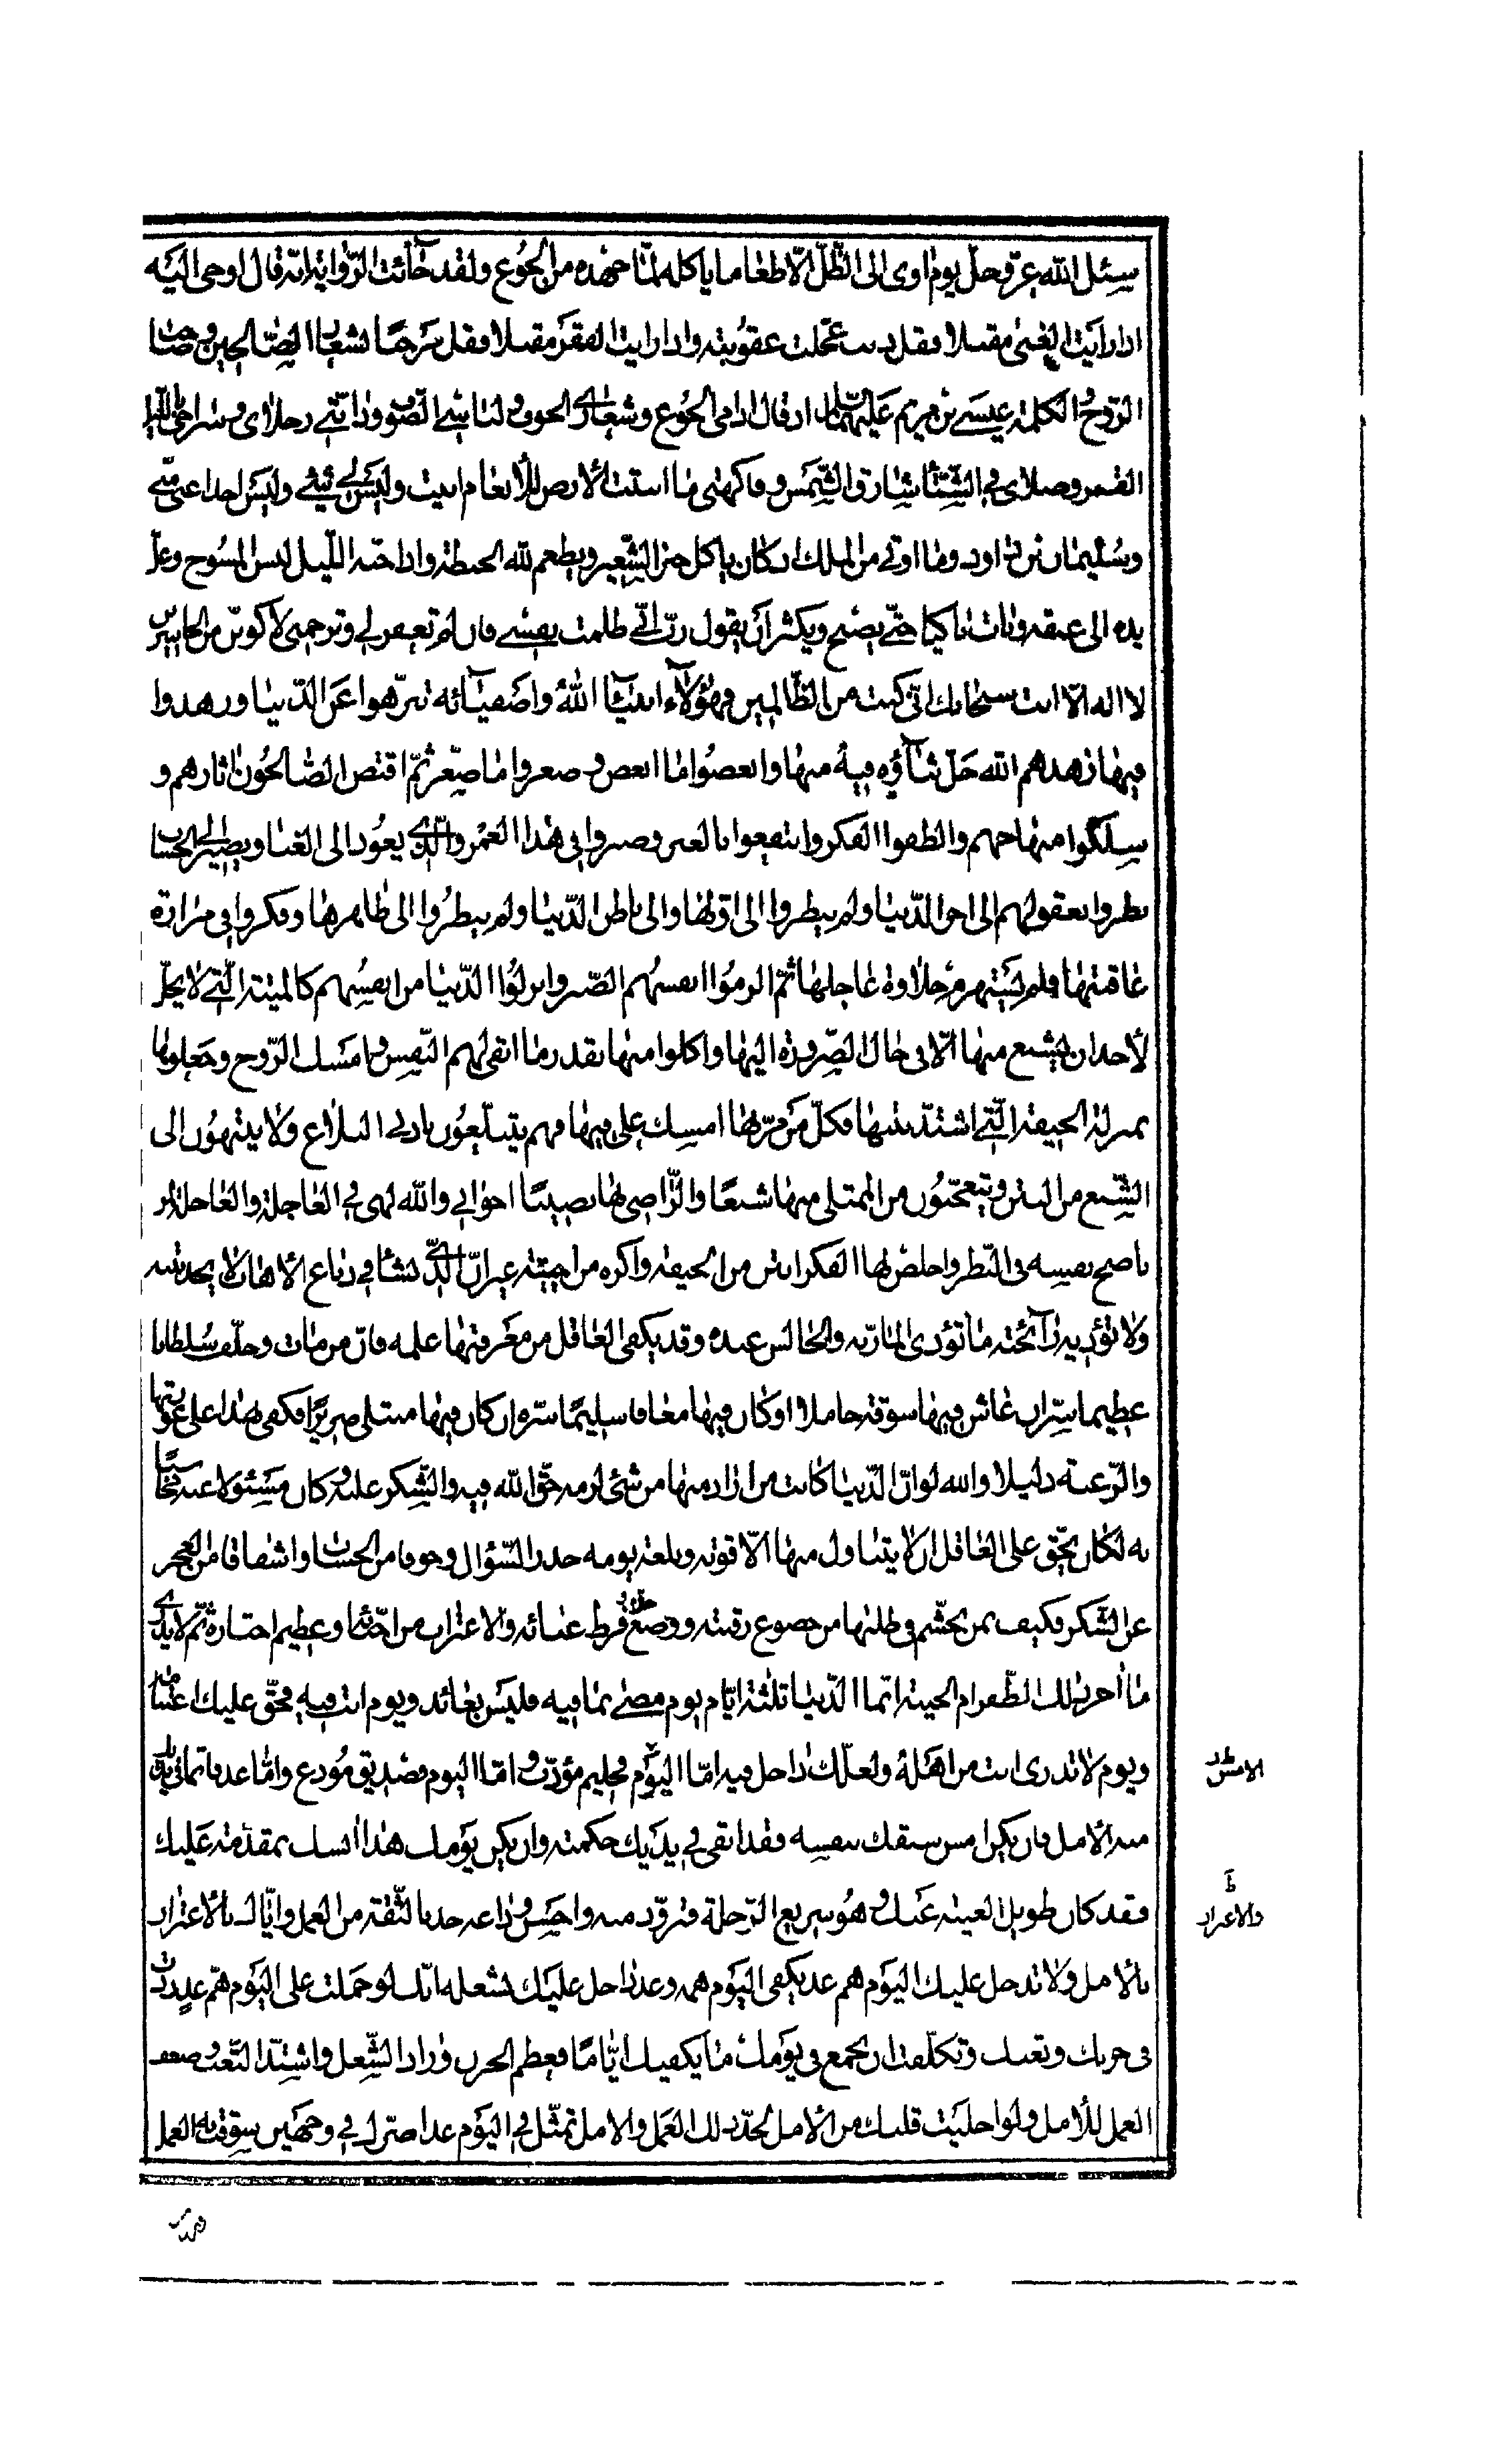 سئل الله عزّ وجلّ يوم اوى الى الظّلّ الّا طعاما ياكله لمّا جهده من الجُوع ولقد جآئت الرّواية انّه قال اوحى اليَه
اذا رايَت الغنىٰ مقبلا فقل ذنب عجّلت عقوُبته واذا رايت الفقرَ مقبلا فقل مَرحبًا بشعار الصّالحين وصاحب
الرّوُح والكلمة عيسَے بن مريم عليهما السّلام اذ قال ادامى الجُوع وشعارے الخوف ولباسے الصّوف ودابّتے رجلاى وسراجى بالليل
القمر وصلاى فے الشّتاء مشارق الشّمس وفاكهتى ما انبتت الارض للأنعام ابيت وليَس لے شئے وليَس احدا غنى منّے
وسُليمان بن داود وما اوتے من الملك اذ كان ياكل خبز الشّعير ويطعم لله الحنطة واذا جنّه اللّيل لبس المسُوح وغلّ
يده الى عنقه وبات باكيا حتّے يصبح ويكثر ان يقول ربّ انّے ظلمت نفسے فان لم تغفر لے وترحمنى لأكوننّ من الخاسرين
لا اله الّا انت سبحانك انّى كنت من الظّالمين فهٰؤلآء انبيآء اللهُ واصَفيآئه تنزّهوا عَن الدّنيا وزهدوا
فيها زهّدهم الله جَلّ ثنآؤه فيهُ منها وابغضوُا ما ابغض وصغروا ما صغّر ثمّ اقتصّ الصّالحوُن اثارهم و
سلكوا منهاجهم والطفوا الفكر وانتفعوا بالعبر وصبروا فى هذا العمُر والّذى يعوُد الى الفناء ويصير الى الحساب
نظروا بعقولهم الى اخر الدّنيا ولم ينظروا الى اوّلها والى باطن الدّنيا ولم ينظرُوا الى ظاهرها وفكروا فى مرارة
عاقبتها فلم يستهزهم حلاوة عاجلها ثمّ الزموُا انفسهم الصّبر وانزلوُا الدّنيا من انفسُهم كالميتة الّتے لا يحلّ
لأحد ان يشبع منها الّا فى حال الضّرورة اليها واكلوا منها بقدر ما ابقى لهم النّفس وامسَك الرّوح وجعلوها
بمنزلة الجيفة الّتے اشتدّ نتنها فكلّ مَن مرّ بها امسك على فيها فهم يتبلّغوُن بادنے البلاغ ولا ينتهوُن الى
الشّبع من النتن ويتعجّبوُن من الممتلى منها شبعًا والرّاضى بها نصيبًا اخوانے والله لهى فے العاجلة والعاجلة لمن
ناصح نفسه فى النّظر واخلصَ لها الفكر انتن من الجيفة واكره من الميتة غير انّ الّذى نشأ فے دباغ الأهاب لا يجد نتنه
ولا تؤذيه رآئحته ما تؤذى المارّ به والجالس عنده وقد يكفى العاقل من معَرفتها علمه فانّ من مات وخلّف سُلطانا
عظيما سرّه ان عاش فيها سوقة خاملا او كان فيها معافا سليمًا سرّه ان كان فيها مبتلى ضريرًا فكفى بهذا على عورتها
والرّغبة دليلا والله لو انّ الدّنيا كانت من اراد منها من شئ لزمه حقّ الله فيه والشّكر عليه وكان مسَئولا عنه محاسبًا
به لكان يحقّ على العاقل ان لا يتناول منها الّا قوته وبلغة يومه حذر السّؤال وخوفا من الحساب واشفاقا من العجز
عن الشكر فكيف بمن تجشّم فى طلبها من خضوع رقبته ووضع خدّه وفرط عنائه والاغتراب من احبّائه وعظيم اختباره ثمّ لا يدرى
ما اخر ذلك الظّفر ام الخيبة انّما الدّنيا ثلٰثة ايّام يوم مضٰے بما فيه فليَس بعائد ويوم انت فيه فحقّ عليك اغتنامه
ويوم لا تدرى انت من اهلهُ ولعلّك داخل فيه امّا اليوم فحليم مؤدّب وامّا اليوم فصديق موُدع وامّا غد فانّما فى يديك
منه الأمل فان يكن امس سبقك بنفسه فقد ابقى فے يدَيك حكمته وان يكن يوَمك هذا انسك بمقدّمة علَيك
فقد كان طويل الغيبة عَنك وهوُ سريع الرّحلة فتزوّد منه واحسِن وداعه خذ بالثّقة من العمل وايّاك بالأغترار
بالأمل ولا تدخل عليك اليَوم هم غد يكفى اليَوم همه وغد داخل عليك بشغله انّك لو حملت على اليَوم همّ غد زدت
فى حزنك وتعبك وتكلّفت ان تجمع فى يوَمك ما يكفيك ايّامًا فعظم الحزن وزاد الشّغل واشتدّ التّعب وضعف
العمل للأمل ولو اخليَت قلبك من الأمل لجدّ ذلك العَمل والامل تمثّل فے اليوَم غدا اضرّك فے وجهَين سوّفت به العمل
الامس
والاغترار